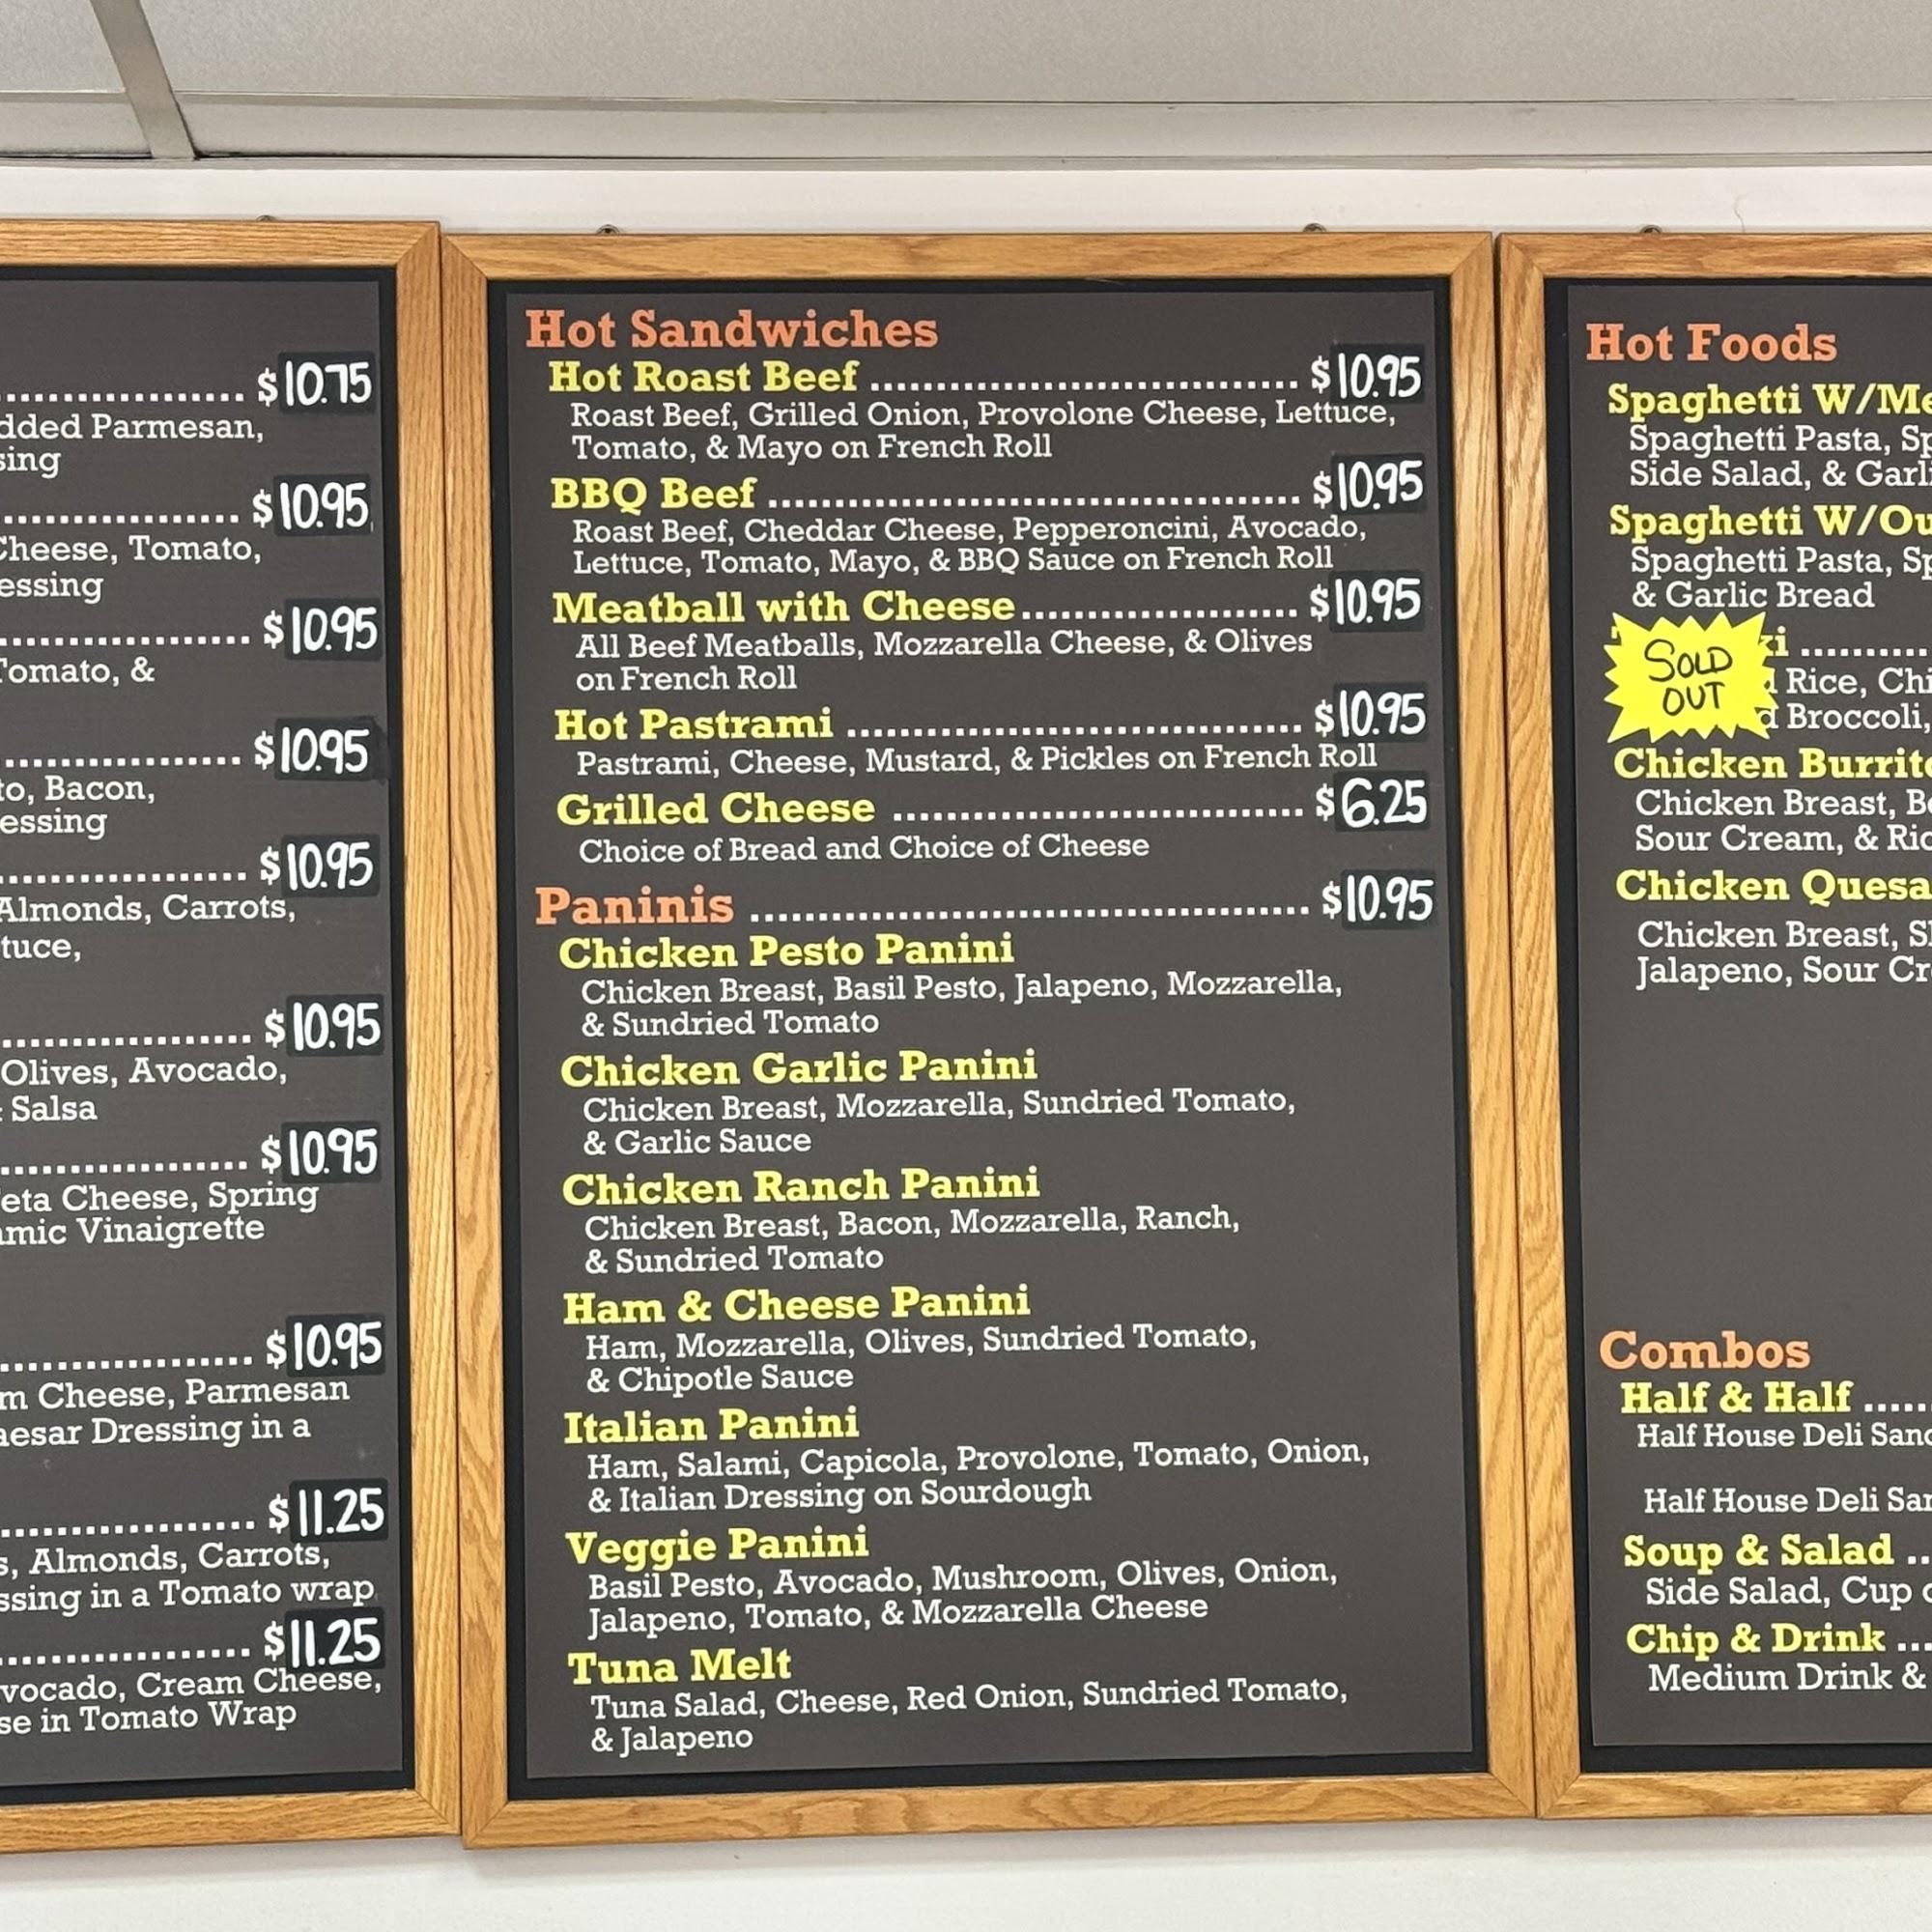 $10.75
Parmesan,
$10.95
Cheese, Tomato,
$10.95
Tomato, &
$10.95
Bacon,
$10.95
Almonds, Carrots,
$10.95
Olives, Avocado,
Salsa
$10.95
Cheese, Spring
Vinaigrette
$10.95
Cheese, Parmesan
Dressing in a
$11.25
Almonds, Carrots,
in a Tomato wrap
$11.25
Cream Cheese,
in Tomato Wrap
Hot Sandwiches
Hot Roast Beef ................................ $10.95
Roast Beef, Grilled Onion, Provolone Cheese, Lettuce,
Tomato, & Mayo on French Roll
BBQ Beef ........................................ $10.95
Roast Beef, Cheddar Cheese, Pepperoncini, Avocado,
Lettuce, Tomato, Mayo, & BBQ Sauce on French Roll
Meatball with Cheese..................... $10.95
All Beef Meatballs, Mozzarella Cheese, & Olives
on French Roll
Hot Pastrami .................................. $10.95
Pastrami, Cheese, Mustard, & Pickles on French Roll
Grilled Cheese ............................... $6.25
Choice of Bread and Choice of Cheese
Paninis .......................................... $10.95
Chicken Pesto Panini
Chicken Breast, Basil Pesto, Jalapeno, Mozzarella,
& Sundried Tomato
Chicken Garlic Panini
Chicken Breast, Mozzarella, Sundried Tomato,
& Garlic Sauce
Chicken Ranch Panini
Chicken Breast, Bacon, Mozzarella, Ranch,
& Sundried Tomato
Ham & Cheese Panini
Ham, Mozzarella, Olives, Sundried Tomato,
& Chipotle Sauce
Italian Panini
Ham, Salami, Capicola, Provolone, Tomato, Onion,
& Italian Dressing on Sourdough
Veggie Panini
Basil Pesto, Avocado, Mushroom, Olives, Onion,
Jalapeno, Tomato, & Mozzarella Cheese
Tuna Melt
Tuna Salad, Cheese, Red Onion, Sundried Tomato,
& Jalapeno
Hot Foods
Spaghetti W/
Spaghetti Pasta,
Side Salad, &
Spaghetti W/
Spaghetti Pasta,
& Garlic Bread
SOLD
OUT
Rice,
Broccoli,
Chicken
Chicken Breast,
Sour Cream, &
Chicken
Chicken Breast,
Jalapeno, Sour
Combos
Half & Half
Half House Deli
Half House Deli
Soup & Salad
Side Salad, Cup
Chip & Drink
Medium Drink &